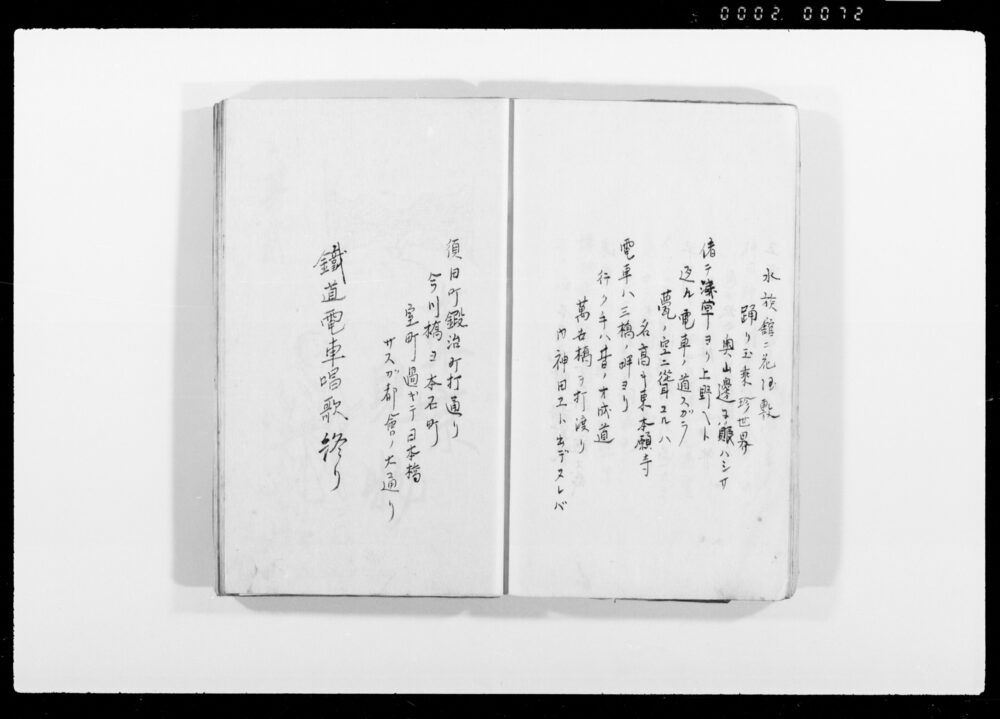 0002 0072
水族館ニ花屋敷
踊り玉乗珍世界
奥山邊ヨ賑ハシサ
偖テ淺草ヨリ上野ヘト
返ル電車ノ道スガラ
甍ノ空ニ聳ユルハ
名高キ東本願寺
電車ハ三橋ノ畔ヨリ
行ク手ハ昔ノ才成道
萬古橋ヲ打渡リ
内神田エト出デヌレバ
須田町鍛冶町打通り
今川橋ヨ本石町
室町過ギテ日本橋
サスガ都會ノ大通り
鐵道電車唱歌終り